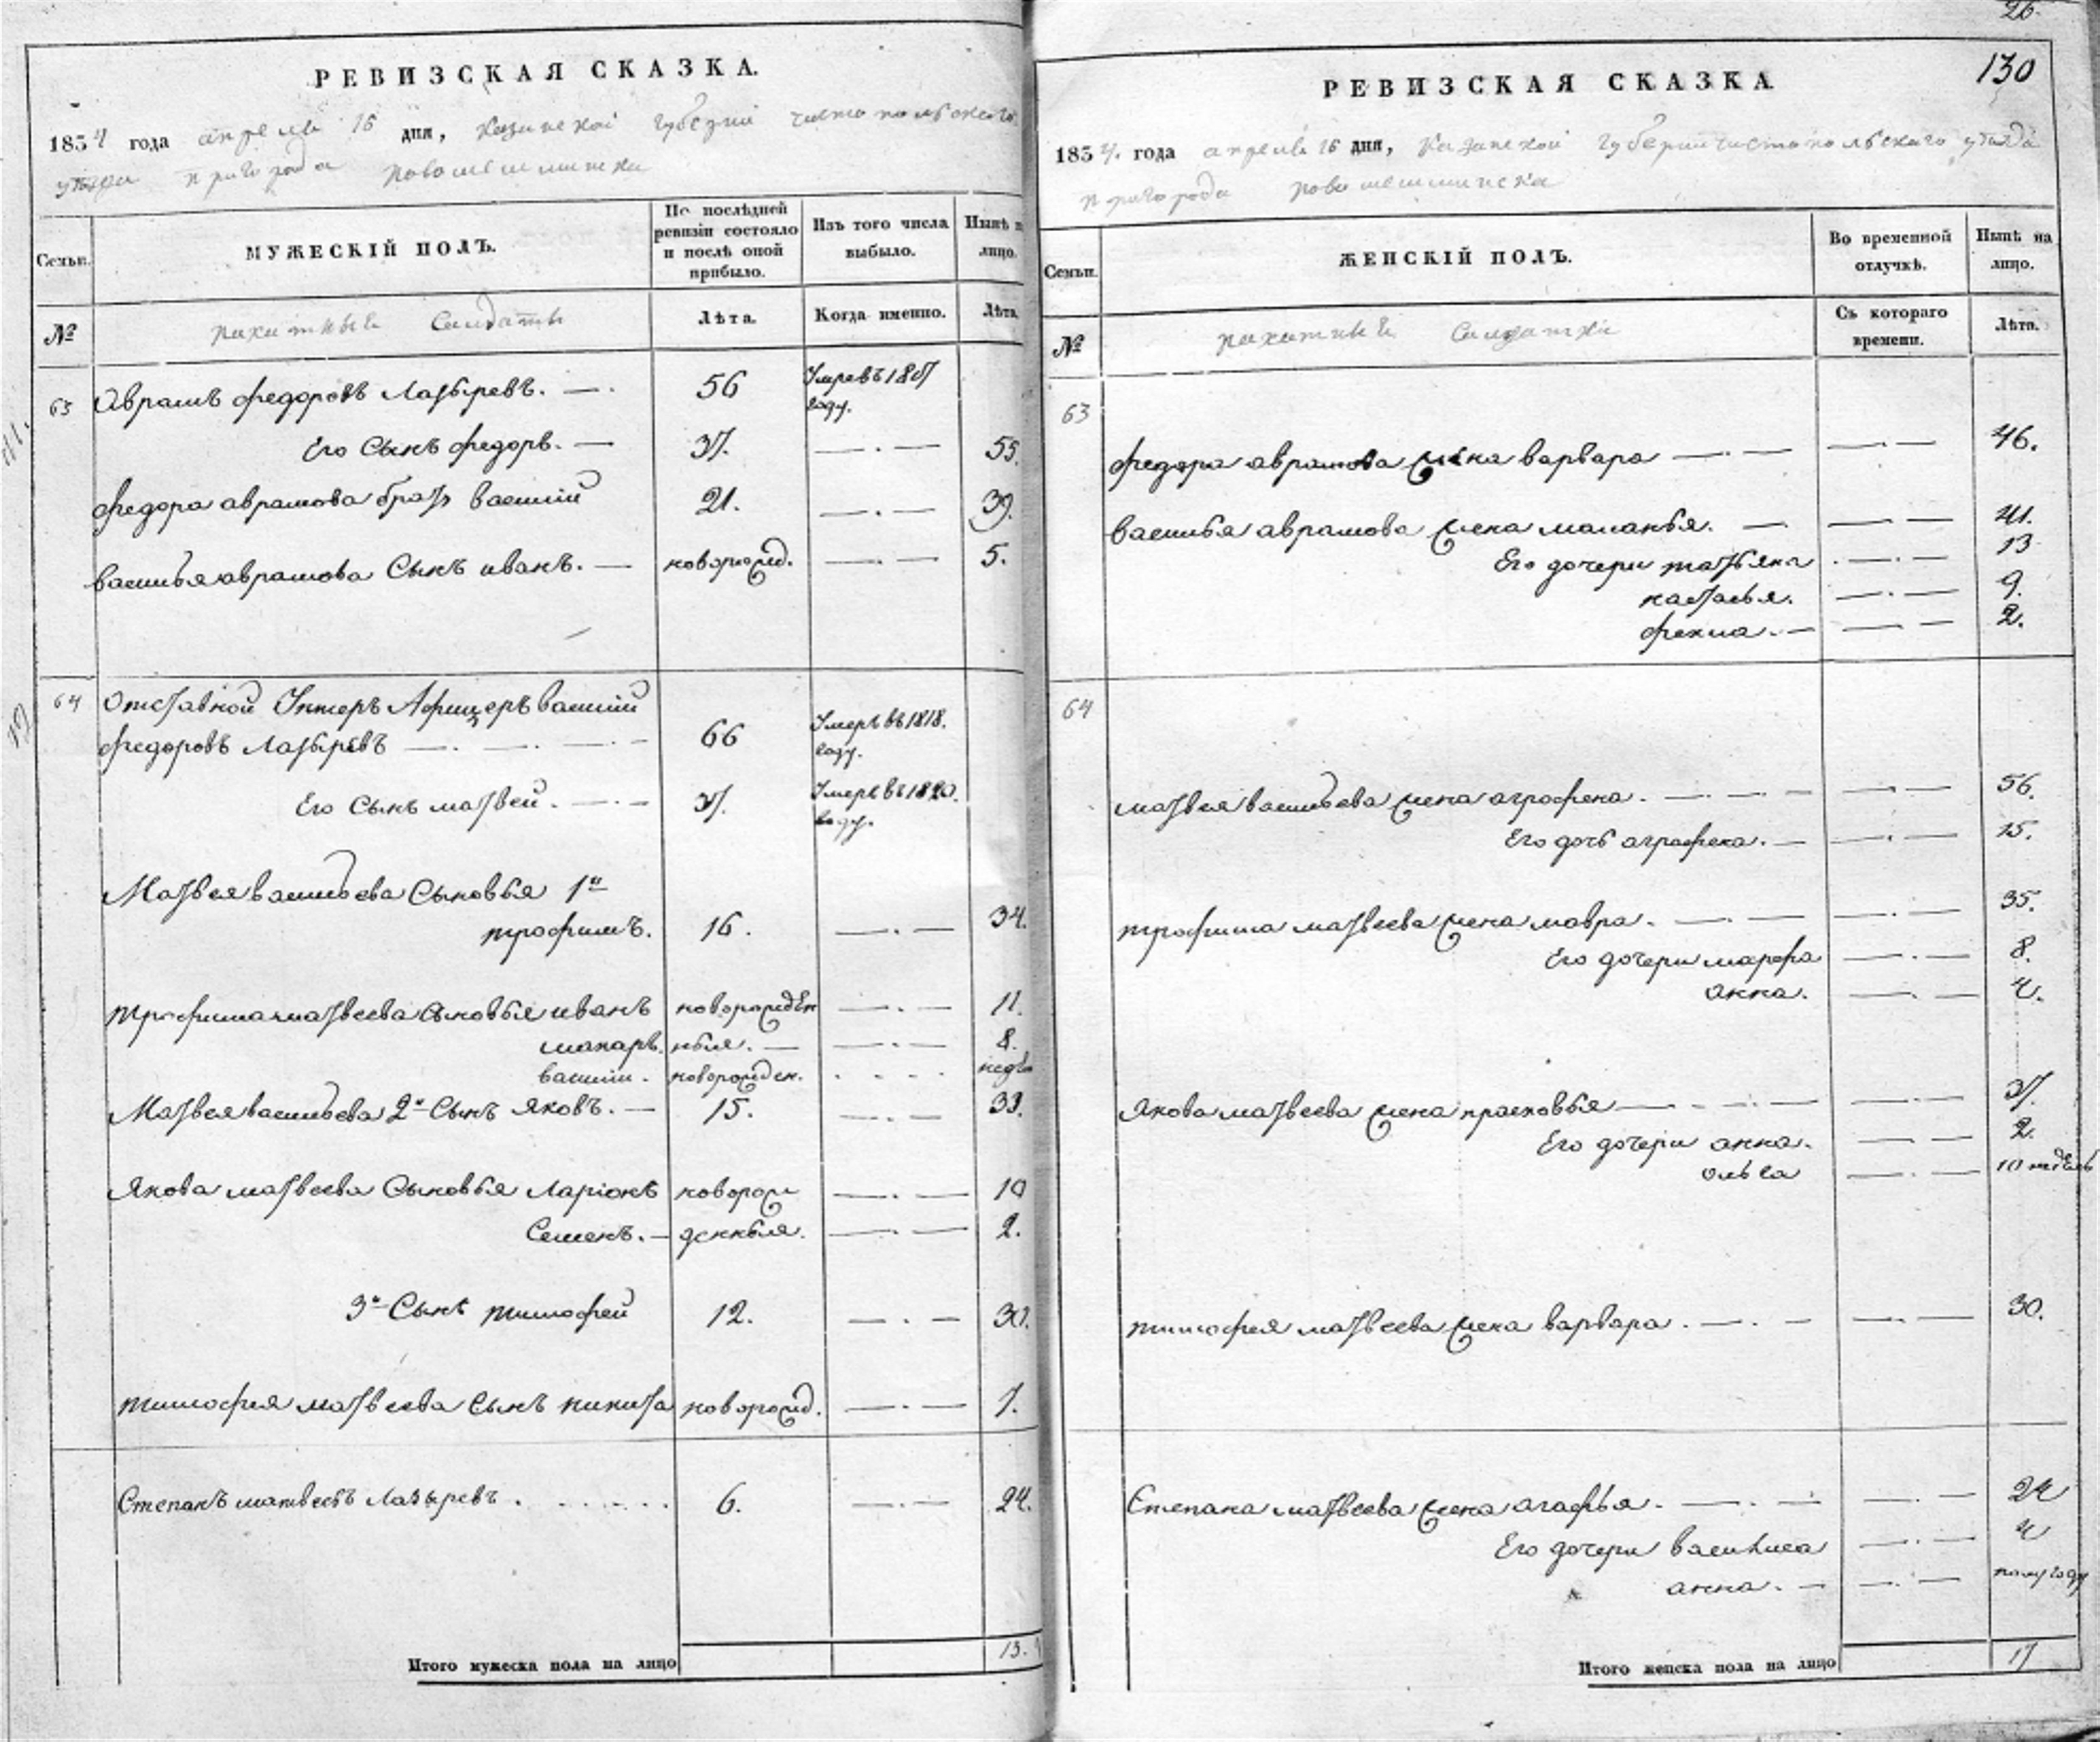 РЕВИЗСКАЯ СКАЗКА.
1834 года апреля 16 дня, Казанской Губернии чистопольского
уезда пригорода новошешминска
Семьи.
МУЖЕСКІЙ ПОЛЪ.
По послѣдней ревизіи состояло и послѣ оной прибыло.
Изъ того числа выбыло.
Нынѣ на лицо.
№
пахатные Солдаты
Лѣта.
Когда именно.
Лѣта.
63 Аврамъ федоровъ Лазыревъ. 56 Умре въ 1817 году.
Его Сынъ федоръ. 37. 55.
федора аврамова братъ василий 21. 39.
васильяаврамова Сынъ иванъ. новорожд. 5.
64 Отставной Унтеръ Афицеръ василий
федоровъ Лазыревъ 66 Умеръ въ 1818. году.
Его Сынъ матвей. 37. Умеръ въ 1820. году.
Матвея васильева Сыновья 1й
трофимъ. 16. 34.
трофима матвеева Сыновья иванъ новорожден 11.
макаръ. ныя. 8.
василии. новорожден. недель
Матвея васильева 2й Сынъ яковъ. 15. 33.
Якова матвеева Сыновья Ларіонъ новорож 10
Семенъ. денныя. 2.
3й Сынъ тимофей 12. 30.
тимофея матвеева Сынъ никита новорожд. 7.
Степанъ матвеевъ Лазыревъ. 6. 24.
Итого мужеска пола на лицо 13.
26.
130
РЕВИЗСКАЯ СКАЗКА
1834. года апреля 16 дня, Казанской Губернии чистопольского уезда
пригорода новошешминска
Семьи.
ЖЕНСКІЙ ПОЛЪ.
Во временной отлучкѣ.
Нынѣ на лицо.
№
пахатные Солдатки
Съ котораго времени.
Лѣта.
63
федора аврамова жена варвара 46.
василья аврамова жена маланья. 41.
Его дочери татьяна 13
настасья. 9.
фекла. 2.
64
матвея васильева жена аграфена. 56.
Его дочь аграфена. 15.
трофима матвеева жена мавра. 35.
Его дочери марфа 8.
анна. 4.
якова матвеева жена прасковья 37.
Его дочери анна. 2.
ольга 10 недель
тимофея матвеева жена варвара. 30.
Степана матвеева жена агафья. 24
Его дочери василиса 4
анна. полугоду
Итого женска пола на лицо 17